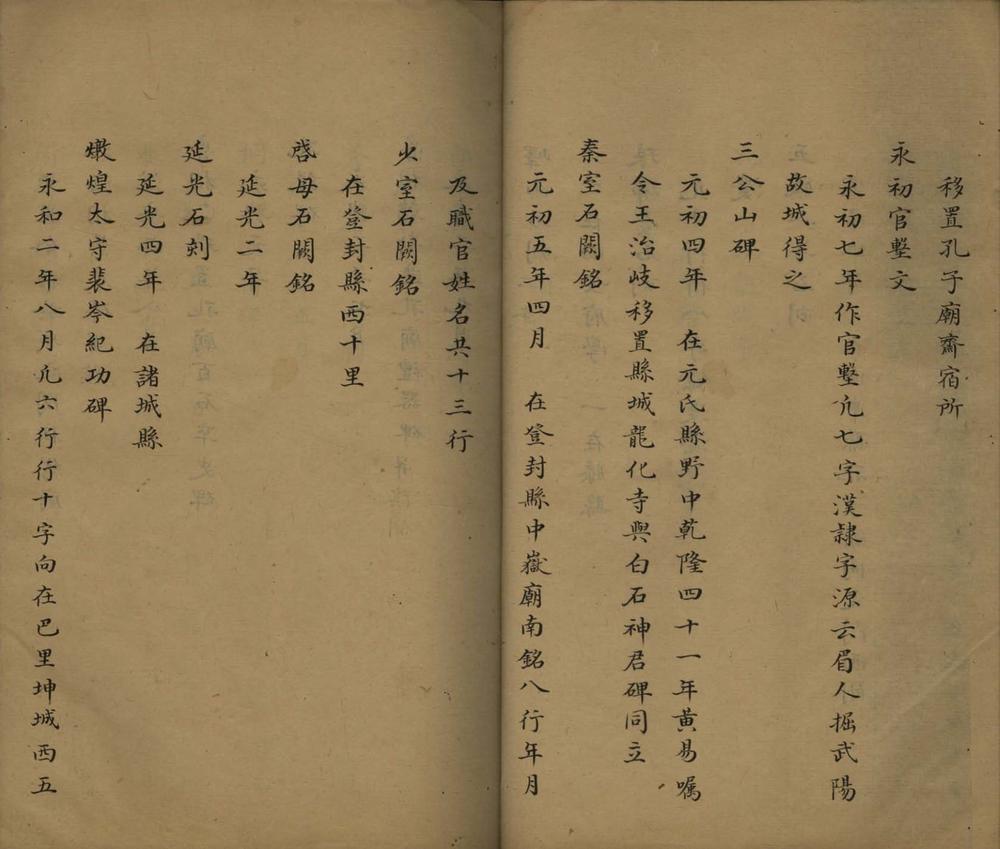 移置孔子廟齋宿所
永初官墼文
永初七年作官墼凢七字漢隷字源云眉人掘武陽
故城得之
三公山碑
元初四年 在元氏縣野中乾隆四十一年黃易嘱
令王治岐移置縣城龍化寺與白石神君碑同立
秦室石闕銘
元初五年四月 在登封縣中嶽廟南銘八行年月
及職官姓名共十三行
少室石闕銘
在登封縣西十里
啓母石闕銘
延光二年
延光石刻
延光四年 在諸城縣
燉煌太守裴岑紀功碑
永和二年八月凢六行行十字向在巴里坤城西五